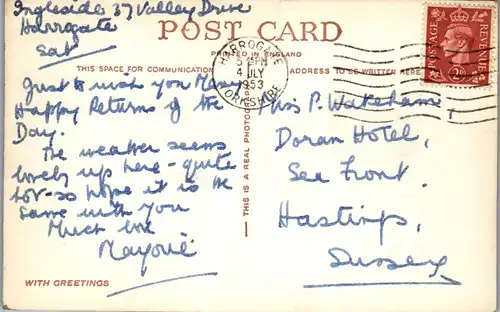 Ingleside 37 Valley Drive
Harrogate
Sat
POST CARD
PRINTED IN ENGLAND
THIS SPACE FOR COMMUNICATION
ADDRESS TO BE WRITTEN HERE
HARROGATE
5 PM
4 JLY
1953
YORKSHIRE
POSTAGE
REVENUE
Just to wish you Many
Happy Returns of the
Day.
The weather seems
lovely up here - quite
hot - so hope it is the
same with you
Much love
WITH GREETINGS
THIS IS A REAL PHOTOGRAPH
Miss P. Wakeham,
Doran Hotel,
Sea Front.
Hastings,
Sussex